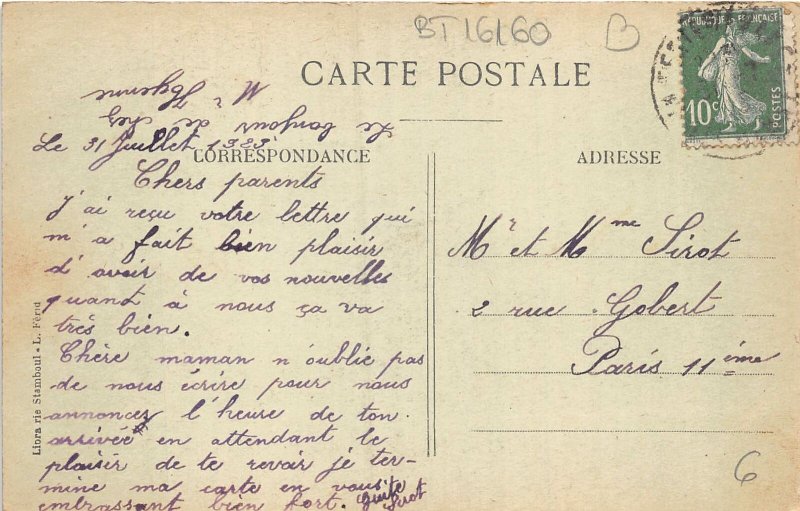 BT16160
B
CARTE POSTALE
RÉPUBLIQUE FRANÇAISE
10c
POSTES
Le bonjour de
Mr
Le 31 Juillet 1923
CORRESPONDANCE
Chers parents
J'ai reçu votre lettre qui
m'a fait bien plaisir
d'avoir de vos nouvelles
quant à nous ça va
très bien.
Chère maman n'oublie pas
de nous écrire pour nous
annoncer l'heure de ton
arrivée en attendant le
plaisir de te revoir je ter-
mine ma carte en vous
embrassant bien fort.
Sirot
ADRESSE
Mr et Mme Sirot
2 rue Gobert
Paris 11ème
6
Librairie Stamboul - L. Férid